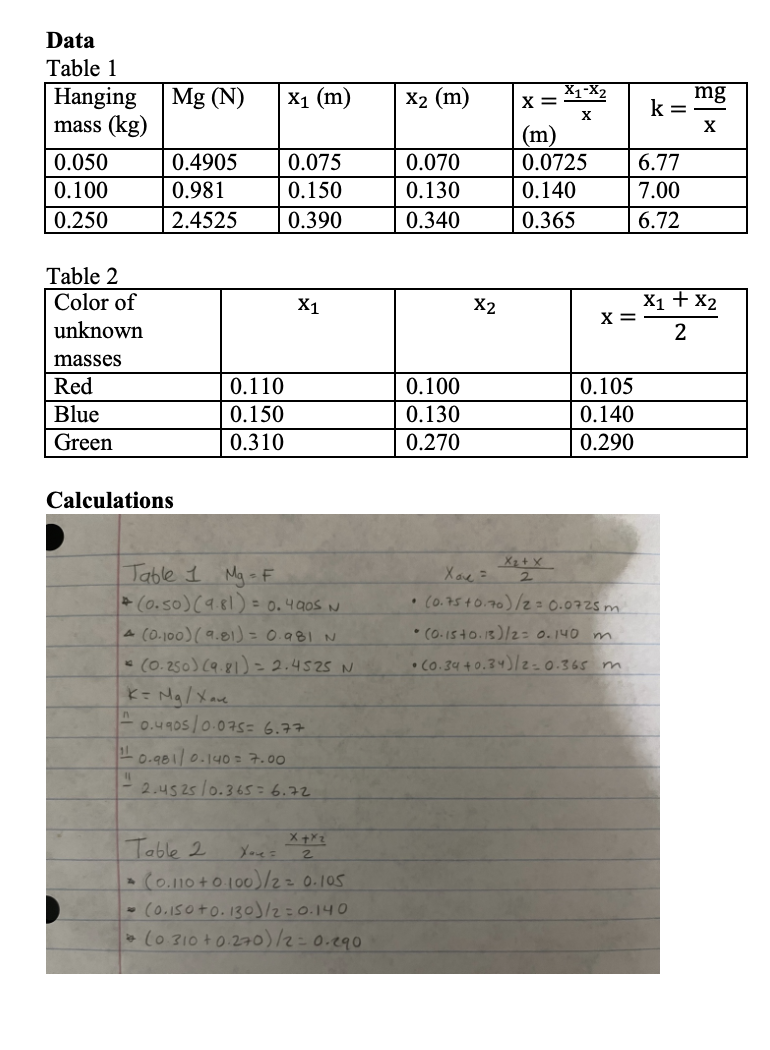 Data
Table 1
Hanging mass (kg) | Mg (N) | x₁ (m) | x₂ (m) | x = (x₁-x₂)/x (m) | k = mg/x
0.050 | 0.4905 | 0.075 | 0.070 | 0.0725 | 6.77
0.100 | 0.981 | 0.150 | 0.130 | 0.140 | 7.00
0.250 | 2.4525 | 0.390 | 0.340 | 0.365 | 6.72
Table 2
Color of unknown masses | x₁ | x₂ | x = (x₁ + x₂)/2
Red | 0.110 | 0.100 | 0.105
Blue | 0.150 | 0.130 | 0.140
Green | 0.310 | 0.270 | 0.290
Calculations
Table 1 Mg = F Xave = (X₂ + X)/2
(0.50)(9.81) = 0.4905 N • (0.75+0.70)/2 = 0.0725 m
(0.100)(9.81) = 0.981 N • (0.15+0.13)/2 = 0.140 m
(0.250)(9.81) = 2.4525 N • (0.39+0.34)/2 = 0.365 m
K = Mg/Xave
0.4905/0.075 = 6.77
0.981/0.140 = 7.00
2.4525/0.365 = 6.72
Table 2 Xave = (X + X₂)/2
(0.110 + 0.100)/2 = 0.105
(0.150 + 0.130)/2 = 0.140
(0.310 + 0.270)/2 = 0.290